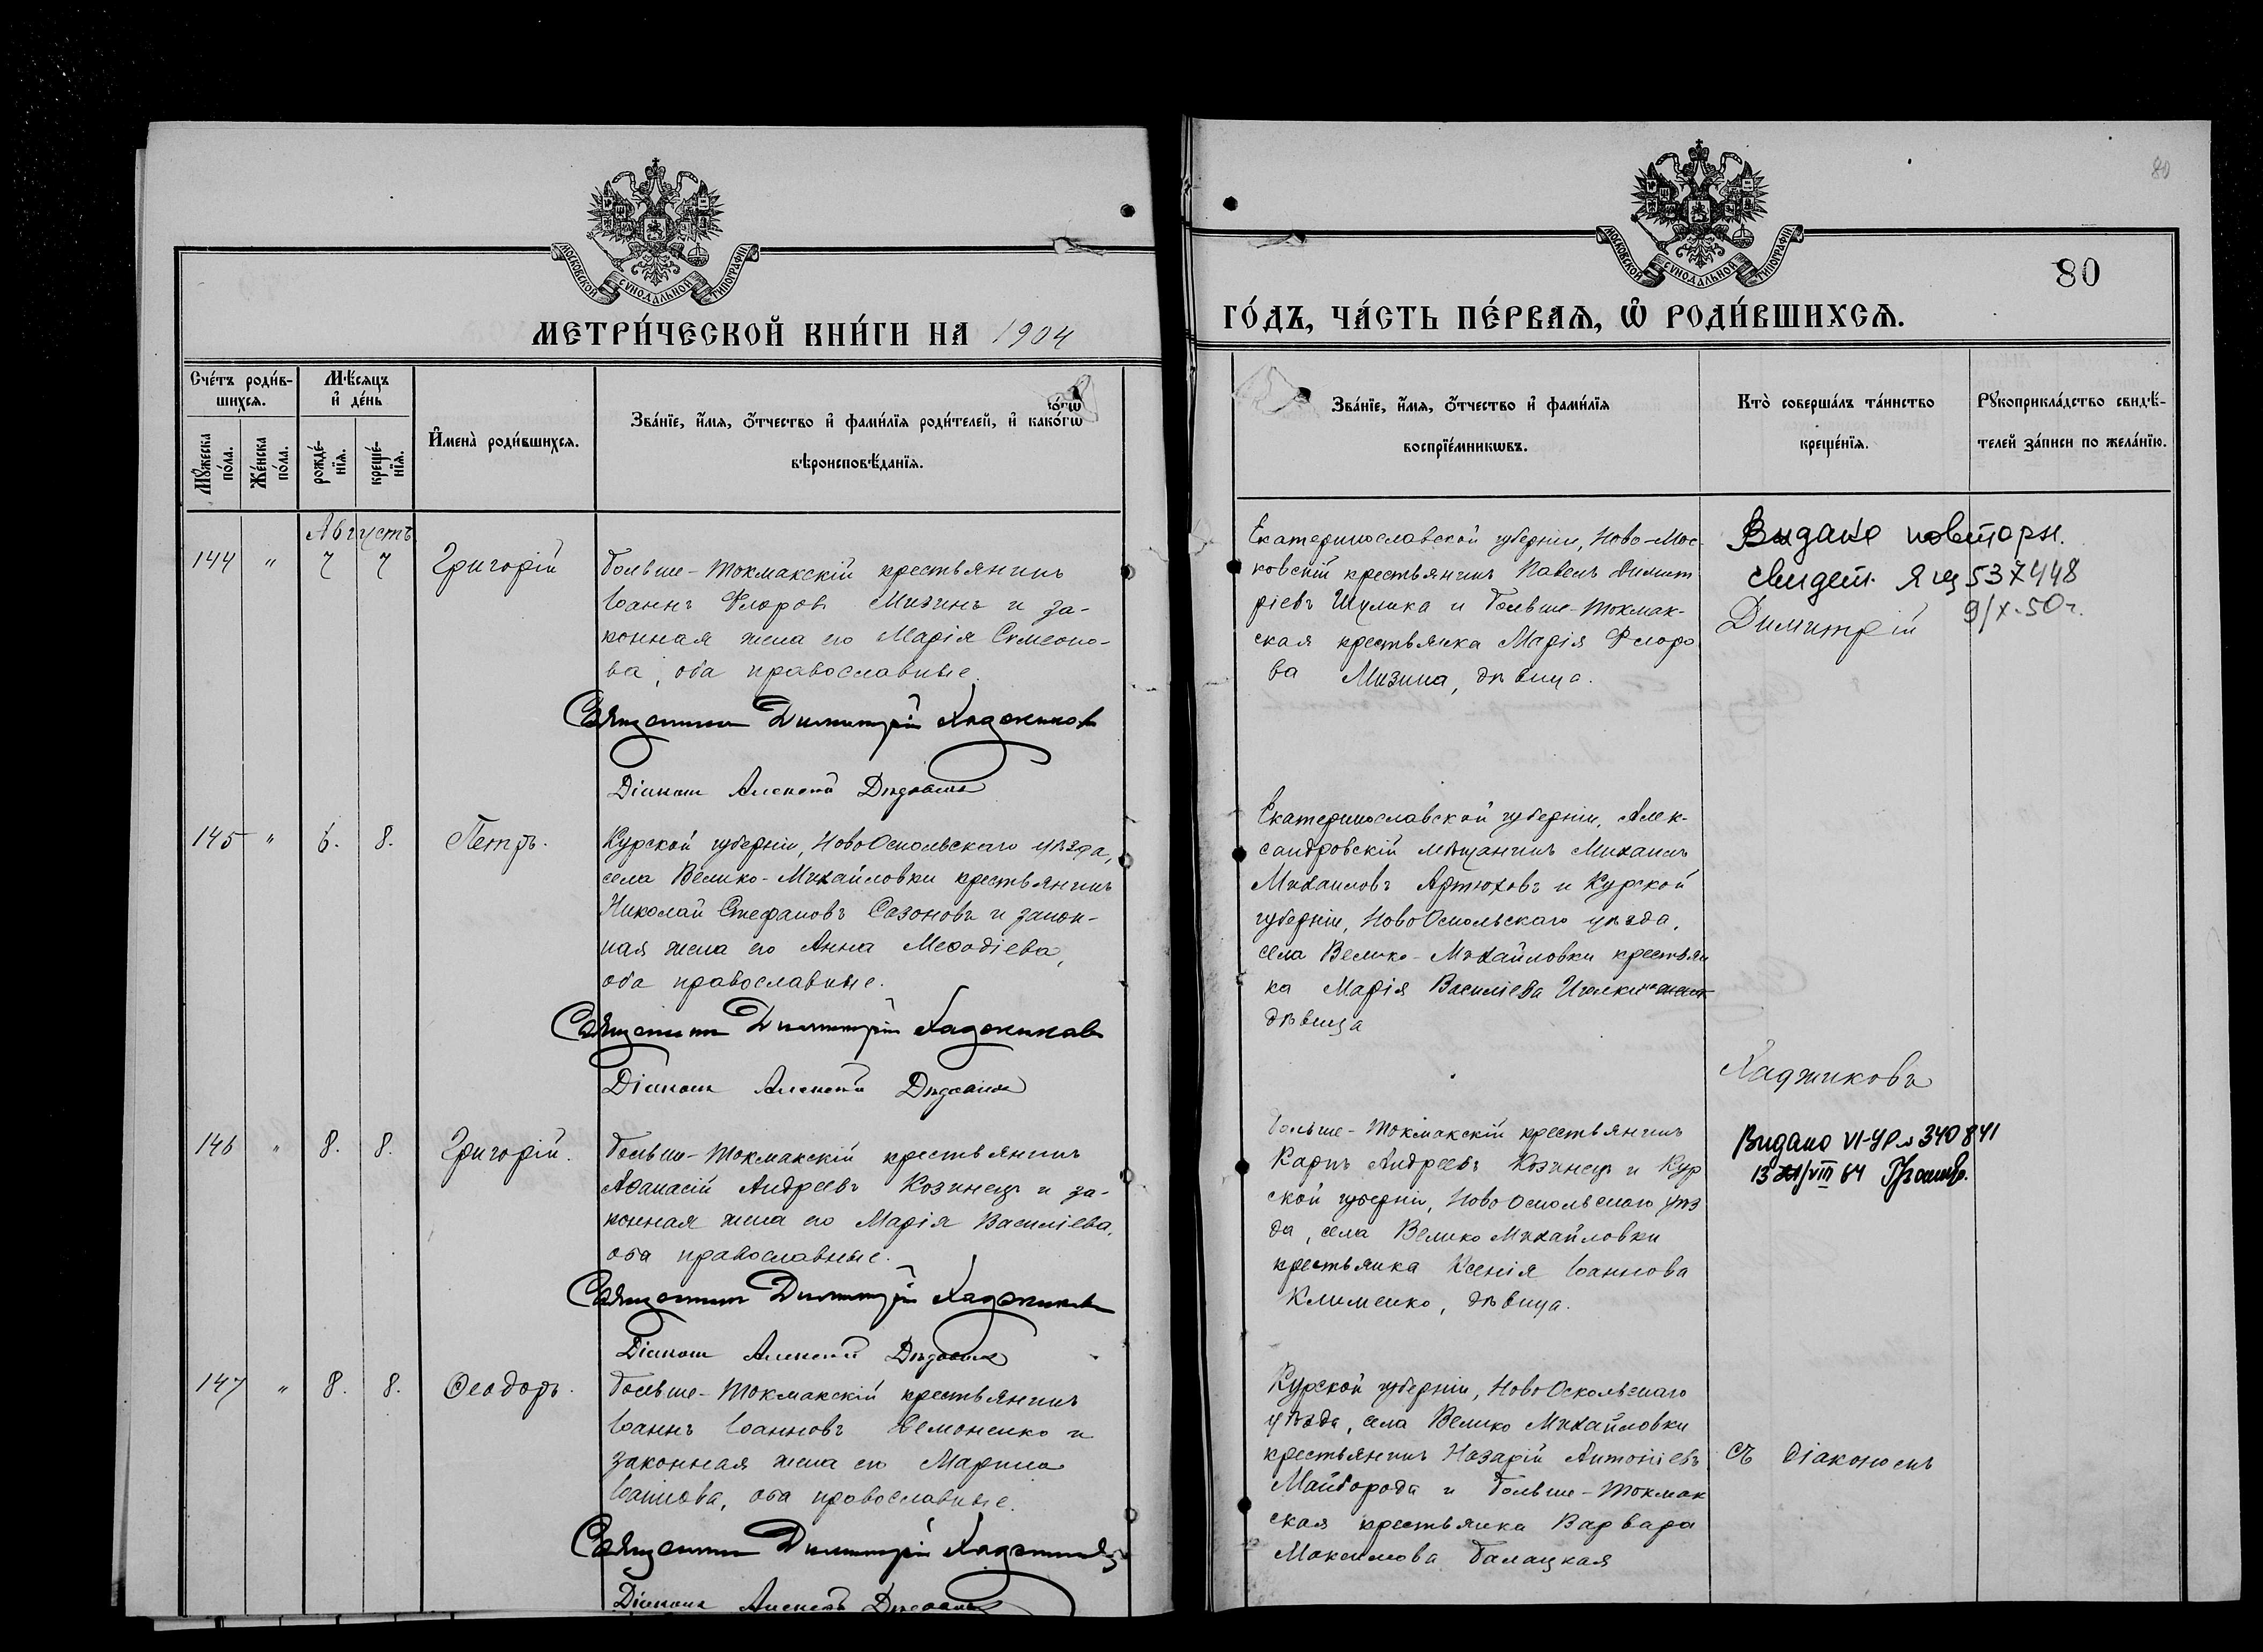 80
МОСКОВСКОЙ СѴНОДАЛЬНОЙ ТИПОГРАФІИ
МЕТРИ́ЧЕСКОЙ КНИ́ГИ НА 1904
Сче́тъ роди́в-
шихсѧ.
Мѣ́сѧцъ
и҆ де́нь
Мꙋ́жеска
по́ла.
Же́нска
по́ла.
рожде́-
нїѧ.
креще́-
нїѧ.
И҆мена̀ роди́вшихсѧ.
Зва́нїе, и҆́мѧ, ѻ҆́тчество и҆ фами́лїѧ роди́телей, и҆ како́гѡ
вѣроисповѣ́данїѧ.
Августъ
144 " 7 7 Григорій
Больше-Токмакскій крестьянинъ
Іоаннъ Флоровъ Мизинъ и за-
конная жена его Марія Симеоно-
ва, оба православные.
Священникъ Димитрій Хаджиковъ
Діаконъ Алексій
145 " 6. 8. Петръ.
Курской губерніи, НовоОскольскаго уѣзда,
села Велико-Михайловки крестьянинъ
Николай Стефановъ Сазоновъ и закон-
ная жена его Анна Меѳодіева,
оба православные.
Священникъ Димитрій Хаджиковъ
Діаконъ Алексій
146 " 8. 8. Григорій.
Больше-Токмакскій крестьянинъ
Аѳанасій Андреевъ Козинецъ и за-
конная жена его Марія Василіева,
оба православные.
Священникъ Димитрій Хаджиковъ
Діаконъ Алексій
147 " 8. 8. Ѳеодоръ.
Больше-Токмакскій крестьянинъ
Іоаннъ Іоанновъ Демоненко и
законная жена его Марина
Іоаннова, оба православные.
Священникъ Димитрій Хаджиковъ
Діаконъ Алексій
80
МОСКОВСКОЙ СѴНОДАЛЬНОЙ ТИПОГРАФІИ
ГО́ДЪ, ЧА́СТЬ ПЕ́РВАѦ, Ѡ҆ РОДИ́ВШИХСѦ.
Зва́нїе, и҆́мѧ, ѻ҆́тчество и҆ фами́лїѧ
воспрїе́мникѡвъ.
Кто̀ соверша́лъ та́инство
креще́нїѧ.
Рꙋкоприкла́дство свидѣ́-
телей за́писи по жела́нїю.
Екатеринославской губерніи, Ново-Мос-
ковскій крестьянинъ Павелъ Димит
ріевъ Шулика и Больше-Токмак-
ская крестьянка Марія Флоро
ва Мизина, дѣвица.
Видано повторн.
свидет. Я 537448
9/X-50г.
Димитрій
Екатеринославской губерніи, Алек-
сандровскій мѣщанинъ Михаилъ
Михаиловъ Артюховъ и Курской
губерніи, НовоОскольскаго уѣзда,
села Велико-Михайловки крестьян
ка Марія Василіева
дѣвица
Хаджиковъ
Больше-Токмакскій крестьянинъ
Карпъ Андреевъ Козинецъ и Кур
ской губерніи, НовоОскольскаго уѣз
да, села Велико Михайловки
крестьянка Ксенія Іоаннова
Клименко, дѣвица.
Видано VI-УР № 340841
13/VIII 64
Курской губерніи, НовоОскольскаго
уѣзда, села Велико Михайловки
крестьянинъ Назарій Антоніевъ
Майборода и Больше-Токмак
ская крестьянка Варвара
Максимова Балацкая
съ діакономъ